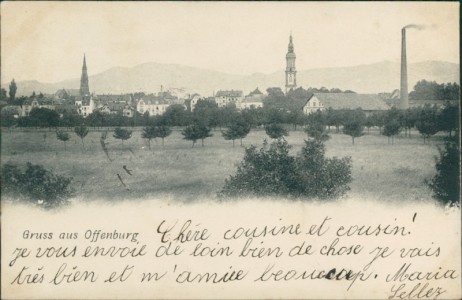 Gruss aus Offenburg
Chère cousine et cousin!
je vous envoie de loin bien de chose je vais
très bien et m'amuse beaucoup. Maria